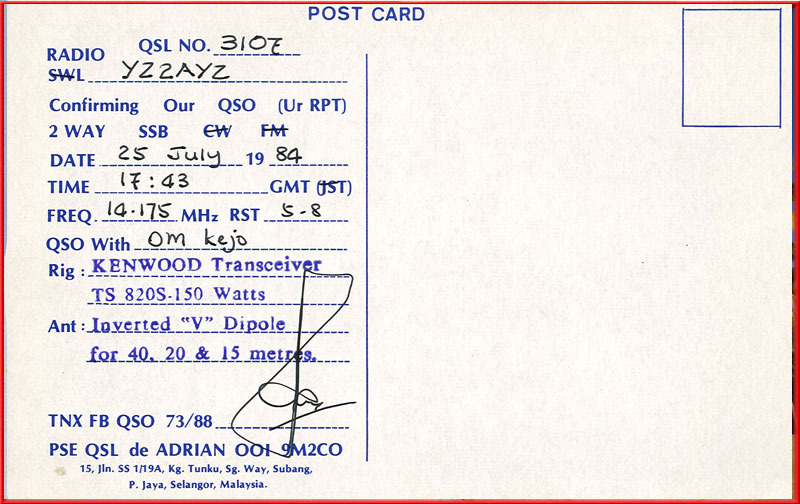 POST CARD
QSL NO. 3107
RADIO
SWL YZ2AYZ
Confirming Our QSO (Ur RPT)
2 WAY SSB CW FM
DATE 25 July 19 84
TIME 17:43 GMT (JST)
FREQ. 14.175 MHz RST 5-8
QSO With OM kejo
Rig : KENWOOD Transceiver
TS 820S-150 Watts
Ant : Inverted "V" Dipole
for 40, 20 & 15 metres.
TNX FB QSO 73/88
PSE QSL de ADRIAN OOI 9M2CO
15, Jln. SS 1/19A, Kg. Tunku, Sg. Way, Subang,
P. Jaya, Selangor, Malaysia.